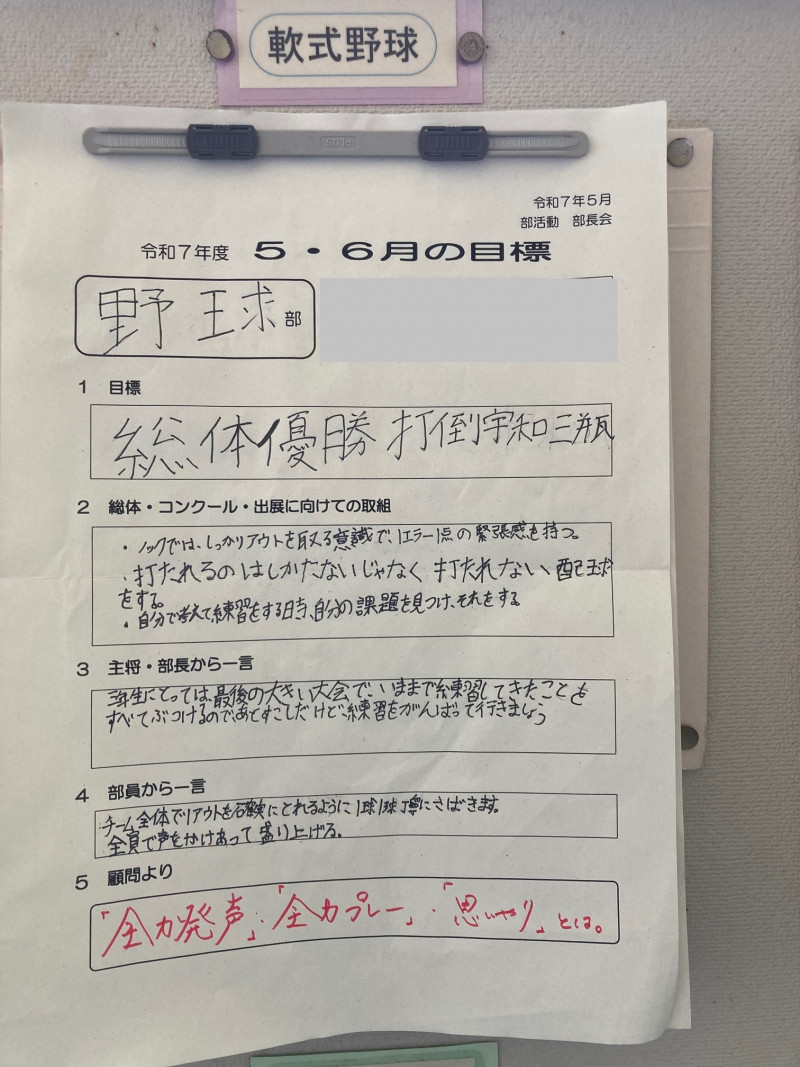 軟式野球
PLUS
令和7年5月
部活動 部長会
令和7年度 5・6月の目標
野球部
1 目標
総体優勝 打倒宇和三瓶
2 総体・コンクール・出展に向けての取組
・ノックでは、しっかりアウトを取る意識で、1エラー1点の緊張感を持つ。
・打たれるのはしかたないじゃなく打たれない配球
をする。
・自分で考えて練習をする時、自分の課題を見つけ、それをする
3 主将・部長から一言
三年生にとっては、最後の大きい大会で、いままで練習してきたことを
すべてぶつけるので、あとすこしだけど、練習をがんばって行きましょう
4 部員から一言
・チーム全体で1アウトを確実にとれるように1球1球丁寧にさばきます。
全員で声をかけあって盛り上げる。
5 顧問より
「全力発声」・「全力プレー」・「思いやり」とは。